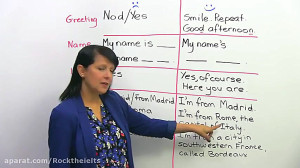 Greeting
Nod/Yes
Smile. Repeat.
Good afternoon.
Name
My name is
My name's
Yes
Yes, of course.
Here you are
/from Madrid
I'm from Madrid.
I'm from Rome, the
of Italy
a city in
southwestern France,
called Bordeaux
aparat.com/Rocktheielts